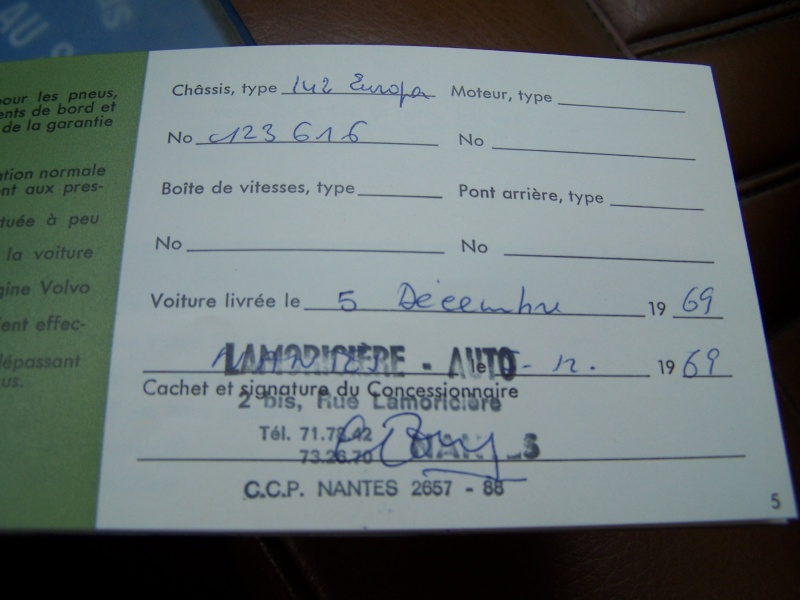 US
AU S
pour les pneus,
ents de bord et
de la garantie
ation normale
nt aux pres-
tuée à peu
la voiture
gine Volvo
ent effec-
dépassant
us.
Châssis, type 142 Europa Moteur, type
No 123616 No
Boîte de vitesses, type Pont arrière, type
No No
Voiture livrée le 5 Décembre 1969
LAMORICIÈRE - AUTO le 5 - 12. 1969
Cachet et signature du Concessionnaire
2 bis, Rue Lamoricière
Tél. 71.78.42
73.26.70 NANTES
C.C.P. NANTES 2657 - 88
5